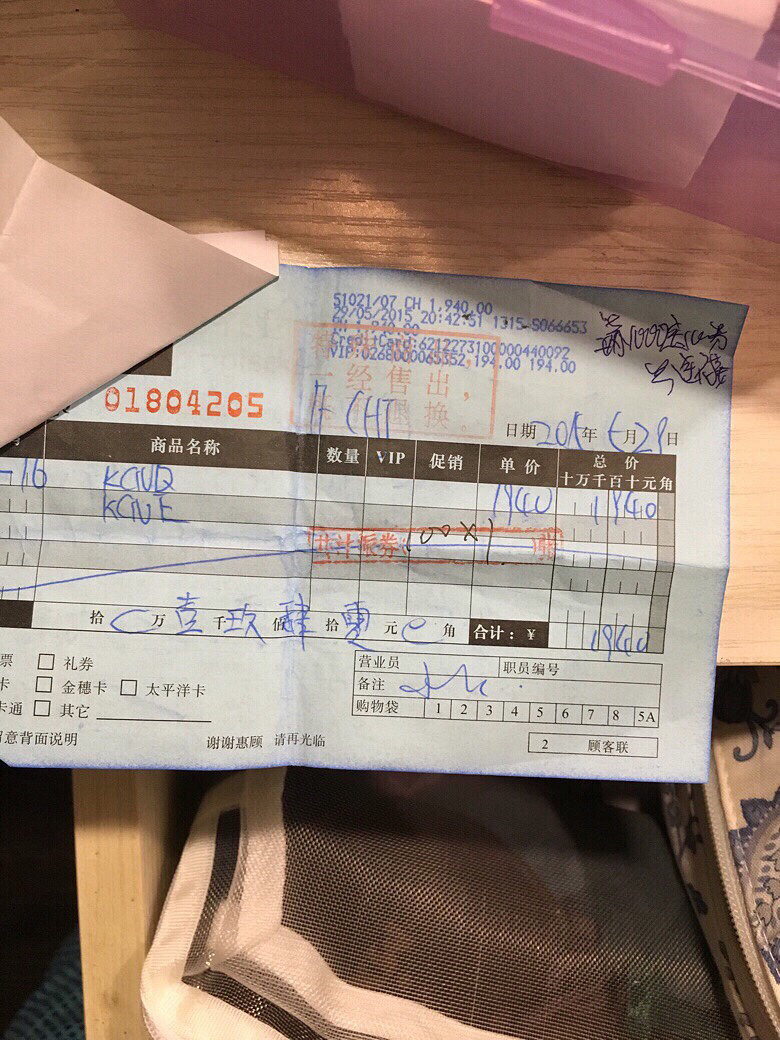 51021/07 CH 1,940.00
29/05/2015 20:42:51 1315-5066653
CreditCard:6212273100000440092
VIP:0268000065352,194.00 194.00
一经售出，
退换
01804205
CHT
日期 2015年5月29日
商品名称 数量 VIP 促销 单价 总价
十万千百十元角
-16 1940 1940
共计 券 100×1
拾 万 壹 千 玖 佰 肆 拾 零 元 角 合计：¥ 1940
票 礼券
卡 金穗卡 太平洋卡
卡通 其它
营业员 职员编号
备注
购物袋 1 2 3 4 5 6 7 8 5A
意背面说明 谢谢惠顾 请再光临
2 顾客联